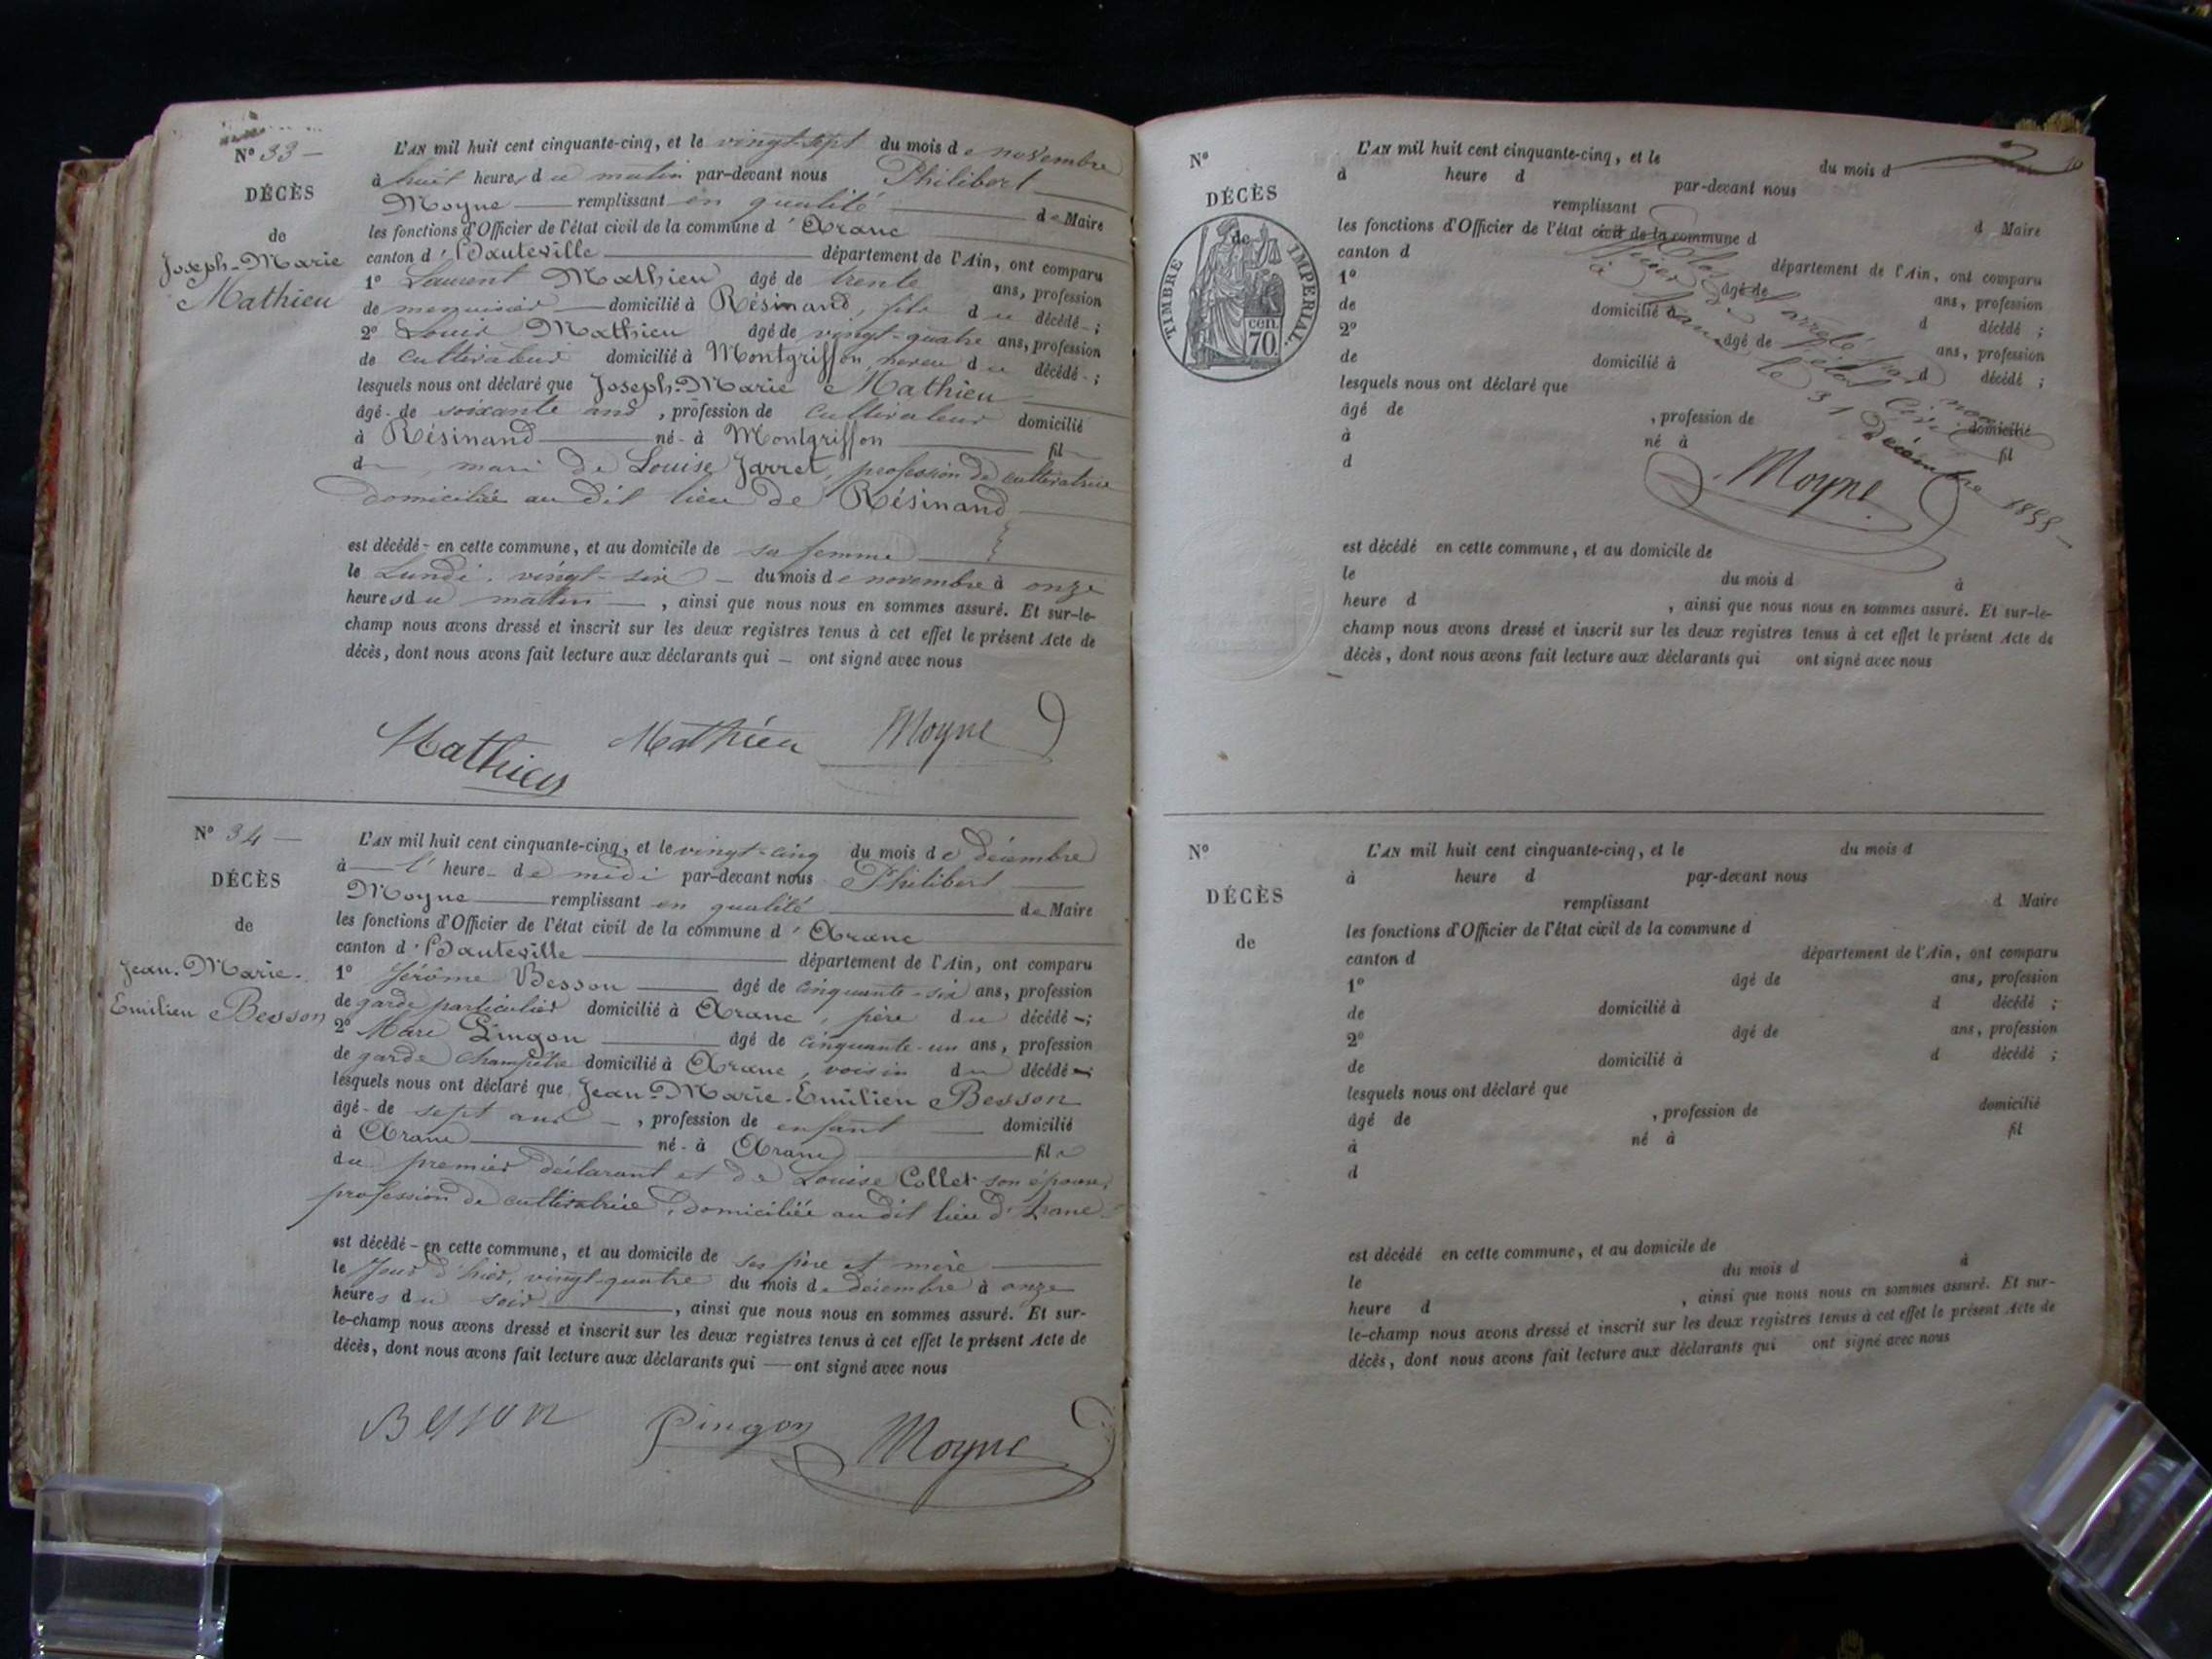 N° 33 —
DÉCÈS
de
Joseph-Marie
Mathieu
L'AN mil huit cent cinquante-cinq, et le vingt-sept du mois de novembre
à huit heures du matin par-devant nous Philibert
Moyne — remplissant en qualité — de Maire
les fonctions d'Officier de l'état civil de la commune d'Aranc
canton d'Hauteville — département de l'Ain, ont comparu
1° Laurent Mathieu âgé de trente ans, profession
de — domicilié à Résinand, fils du décédé - ;
2° Louis Mathieu âgé de vingt-quatre ans, profession
de cultivateur domicilié à Montgriffon, neveu du décédé - ;
lesquels nous ont déclaré que Joseph-Marie Mathieu —
âgé - de soixante ans, profession de cultivateur domicilié
à Résinand — né - à Montgriffon — fil
d— mari de Louise Jarret, profession de cultivatrice
domiciliée au dit lieu de Résinand —
est décédé - en cette commune, et au domicile de sa femme —
le Lundi, vingt-six — du mois de novembre à onze
heures du matin —, ainsi que nous nous en sommes assuré. Et sur-le-
champ nous avons dressé et inscrit sur les deux registres tenus à cet effet le présent Acte de
décès, dont nous avons fait lecture aux déclarants qui — ont signé avec nous
Mathieu Mathieu Moyne
N° 34 —
DÉCÈS
de
Jean-Marie-
Emilien Besson
L'AN mil huit cent cinquante-cinq, et le vingt-cinq du mois de décembre
à — l'heure - de midi par-devant nous Philibert —
Moyne — remplissant en qualité — de Maire
les fonctions d'Officier de l'état civil de la commune d'Aranc
canton d'Hauteville — département de l'Ain, ont comparu
1° Jérôme Besson — âgé de cinquante-six ans, profession
de garde particulier domicilié à Aranc, père du décédé - ;
2° Marc Pingon — âgé de cinquante-un ans, profession
de garde champêtre domicilié à Aranc, voisin du décédé - ;
lesquels nous ont déclaré que Jean-Marie-Emilien Besson
âgé - de sept ans —, profession de enfant — domicilié
à Aranc — né - à Aranc — fils
du premier déclarant et de Louise Collet son épouse,
profession de cultivatrice, domiciliée au dit lieu d'Aranc -
est décédé - en cette commune, et au domicile de ses père et mère —
le jour d'hier, vingt-quatre du mois de décembre à onze
heures du soir —, ainsi que nous nous en sommes assuré. Et sur-
le-champ nous avons dressé et inscrit sur les deux registres tenus à cet effet le présent Acte de
décès, dont nous avons fait lecture aux déclarants qui — ont signé avec nous
Besson Pingon Moyne
N°
DÉCÈS
de
TIMBRE IMPERIAL.
cen.
70
L'AN mil huit cent cinquante-cinq, et le du mois d
à heure d par-devant nous
remplissant d Maire
les fonctions d'Officier de l'état civil de la commune d
canton d département de l'Ain, ont comparu
1° âgé de ans, profession
de domicilié à d décédé ;
2° âgé de ans, profession
de domicilié à d décédé ;
lesquels nous ont déclaré que
âgé de , profession de domicilié
à né à fil
d
Clos et arrêté par nous
Maire de l'état civil
à Aranc le 31 Décembre 1855 —
Moyne
est décédé en cette commune, et au domicile de
le du mois d à
heure d , ainsi que nous nous en sommes assuré. Et sur-le-
champ nous avons dressé et inscrit sur les deux registres tenus à cet effet le présent Acte de
décès, dont nous avons fait lecture aux déclarants qui ont signé avec nous
N°
DÉCÈS
de
L'AN mil huit cent cinquante-cinq, et le du mois d
à heure d par-devant nous
remplissant d Maire
les fonctions d'Officier de l'état civil de la commune d
canton d département de l'Ain, ont comparu
1° âgé de ans, profession
de domicilié à d décédé ;
2° âgé de ans, profession
de domicilié à d décédé ;
lesquels nous ont déclaré que
âgé de , profession de domicilié
à né à fil
d
est décédé en cette commune, et au domicile de
le du mois d à
heure d , ainsi que nous nous en sommes assuré. Et sur-
le-champ nous avons dressé et inscrit sur les deux registres tenus à cet effet le présent Acte de
décès, dont nous avons fait lecture aux déclarants qui ont signé avec nous